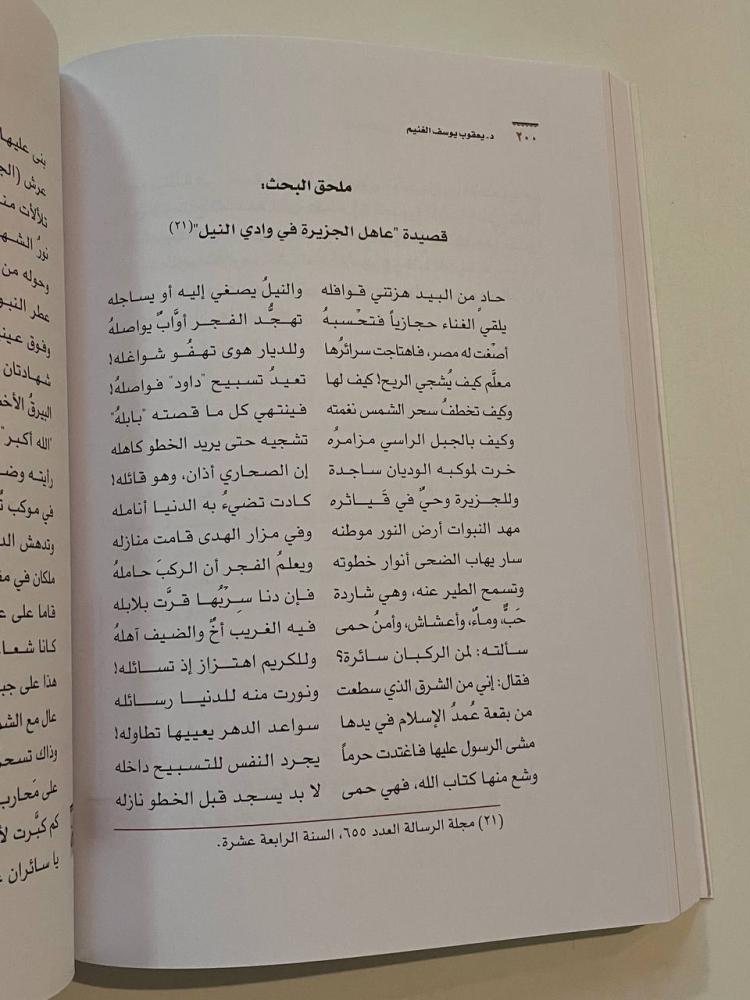 ٢٠٠
د. يعقوب يوسف الغنيم
ملحق البحث:
قصيدة "عاهل الجزيرة في وادي النيل"(٢١)
حادٍ من البيد هزتني قوافله والنيلُ يصغي إليه أو يساجله
يلقي الغناء حجازياً فتحْسبهُ تهجُّد الفجر أوَّابٌ يواصلهُ
أصْغت له مصر، فاهتاجت سرائرُها وللديار هوى تهفُو شواغله!
معلَّم كيف يُشجي الريح! كيف لها تعيدُ تسبيح "داود" فواصلهُ!
وكيف تخطفُ سحر الشمس نغمته فينتهي كل ما قصته "بابلهُ"
وكيف بالجبل الراسي مزامرُه تشجيه حتى يريد الخطو كاهله
خرت لموكبه الوديان ساجدة إن الصحاري أذان، وهو قائله!
وللجزيرة وحيٌ في قَياثره كادت تضيءُ به الدنيا أنامله
مهد النبوات أرض النور موطنه وفي مزار الهدى قامت منازله
سار يهاب الضحى أنوار خطوته ويعلمُ الفجر أن الركبَ حاملهُ
وتسمح الطير عنه، وهي شاردة فإن دنا سِرْبُها قرَّت بلابله
حَبٌّ، وماءٌ، وأعشاش، وأمنُ حمى فيه الغريب أخٌ والضيف آهلهُ
سألته: لمن الركبان سائرة؟ وللكريم اهتزاز إذ تسائله!
فقال: إني من الشرق الذي سطعت ونورت منه للدنيا رسائله
من بقعة عُمدُ الإسلام في يدها سواعد الدهر يعييها تطاوله!
مشى الرسول عليها فاغتدت حرماً يجرد النفس للتسبيح داخله
وشع منها كتاب الله، فهي حمى لا بد يسجد قبل الخطو نازله
(٢١) مجلة الرسالة العدد ٦٥٥، السنة الرابعة عشرة.
بنى عليها
عرش
تلألأت
نورُ
وحوله من
عطر
وفوق
شهادتان
البيرقُ
"الله أكبر"
رأيته
في موكب
وتدهش
ملكان في
قاما على
كانا
هذا على
عال مع
وذاك
على مَحارب
كم كبَّرت
يا سائران